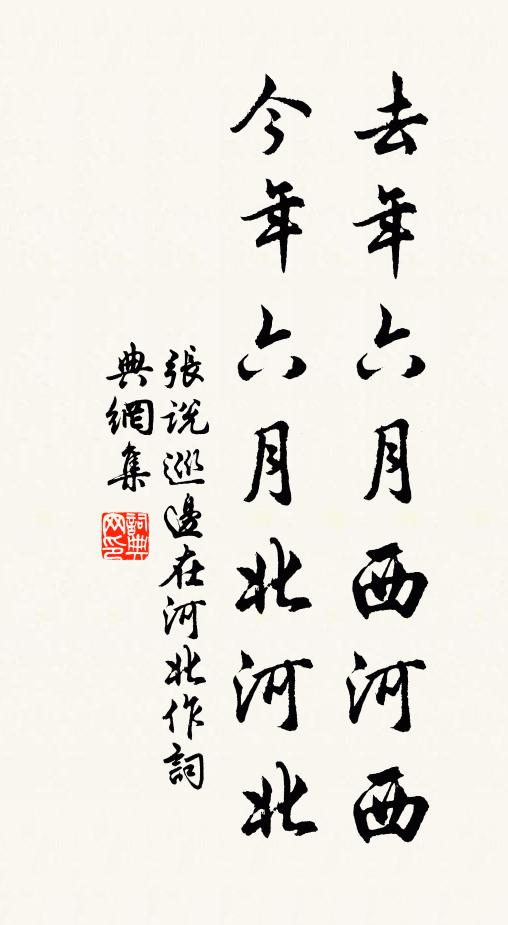 去年六月西河西
今年六月北河北
張說巡邊在河北作詞
典網集
詞典
网印